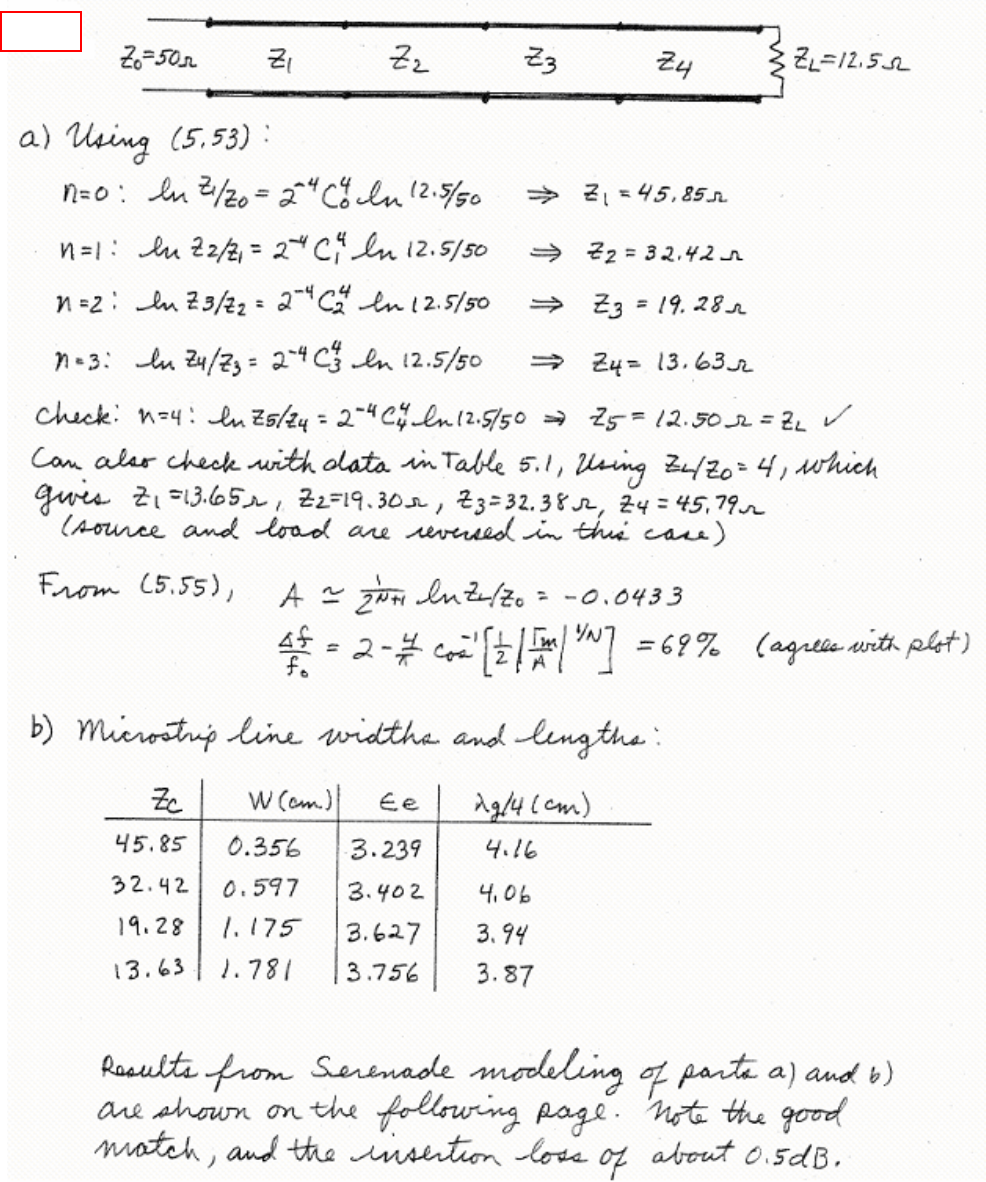 Z₀=50Ω Z₁ Z₂ Z₃ Z₄ Z_L=12.5Ω
a) Using (5.53):
n=0: ln Z₁/Z₀ = 2⁻⁴ C₀⁴ ln 12.5/50 ⇒ Z₁ = 45.85Ω
n=1: ln Z₂/Z₁ = 2⁻⁴ C₁⁴ ln 12.5/50 ⇒ Z₂ = 32.42Ω
n=2: ln Z₃/Z₂ = 2⁻⁴ C₂⁴ ln 12.5/50 ⇒ Z₃ = 19.28Ω
n=3: ln Z₄/Z₃ = 2⁻⁴ C₃⁴ ln 12.5/50 ⇒ Z₄ = 13.63Ω
Check: n=4: ln Z₅/Z₄ = 2⁻⁴ C₄⁴ ln 12.5/50 ⇒ Z₅ = 12.50Ω = Z_L ✓
Can also check with data in Table 5.1, Using Z_L/Z₀ = 4, which
gives Z₁ = 13.65Ω, Z₂ = 19.30Ω, Z₃ = 32.38Ω, Z₄ = 45.79Ω
(source and load are reversed in this case)
From (5.55), A ≃ 1/2^(N+1) ln Z_L/Z₀ = -0.0433
Δf/f₀ = 2 - 4/π cos⁻¹[1/2 |Γm/A|^(1/N)] = 69% (agrees with plot)
b) Microstrip line widths and lengths:
Zc W(cm) Єe λg/4 (cm)
45.85 0.356 3.239 4.16
32.42 0.597 3.402 4.06
19.28 1.175 3.627 3.94
13.63 1.781 3.756 3.87
Results from Serenade modeling of parts a) and b)
are shown on the following page. Note the good
match, and the insertion loss of about 0.5dB.